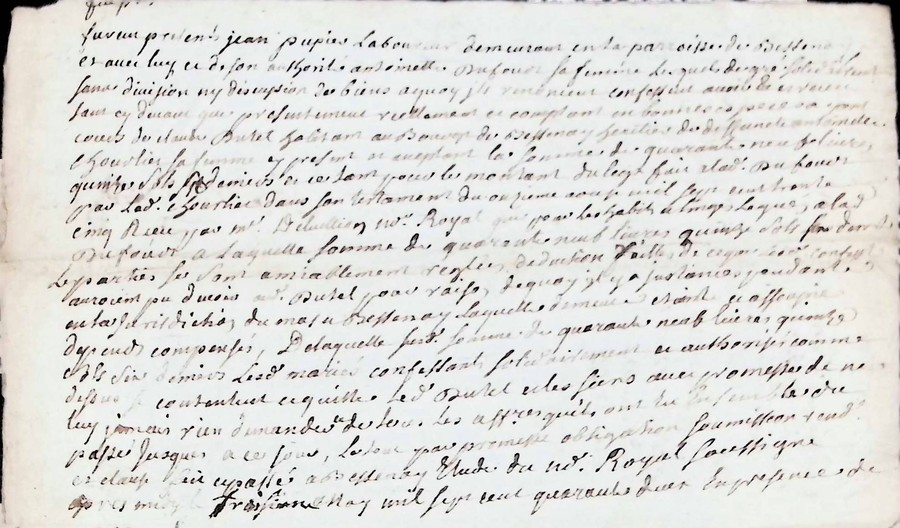 furent présents jean pupier Laboureur demeurant en la parroisse de Bessenay
et avec luy et de son authorité antoinette Dufour sa femme Lesquels de gré solidairement
sans division ny discussion de biens a quoy ils renoncent confessent avoir
tout cy devant que présentement réellement et comptant en bonnes especes ayant
cours de claude Dutel habitant au Bourg de Bessenay heritier de deffuncte antoinette
Chourlier sa femme cy present et acceptant la somme de quarante neuf livres
quinze sols six deniers et ce tant pour le montant du legs fait a lad. Dufour
par Lad. Chourlier dans son testament du onzieme aoust mil sept cent trente
cinq Receu par me. no.re Royal que pour les habits et linges legués a lad.
Dufour a Laquelle somme de quarante neuf livres quinze sols six deniers
Les parties se sont amiablement reglées deduction faitte de ce que
auroient pu devoir aud. Dutel pour raison de quoy il y a instance pendante
en la jurisdiction de Bessenay Laquelle demeure eteinte et assoupie
depends compensés, De laquelle susd. somme de quarante neuf livres quinze
sols six deniers Lesd. mariés confessants solidairement et authorisés comme
dessus se contentent et quittent led. Dutel et les siens avec promesse de ne
luy jamais rien demander de tous Les affres quils ont eu Ensemble du
passé jusques a ce jour, Le tout par promesse obligation soumission
et clause fait et passé a Bessenay Etude du no.re Royal soussigné
apres midy le may mil sept cent quarante deux En presence de